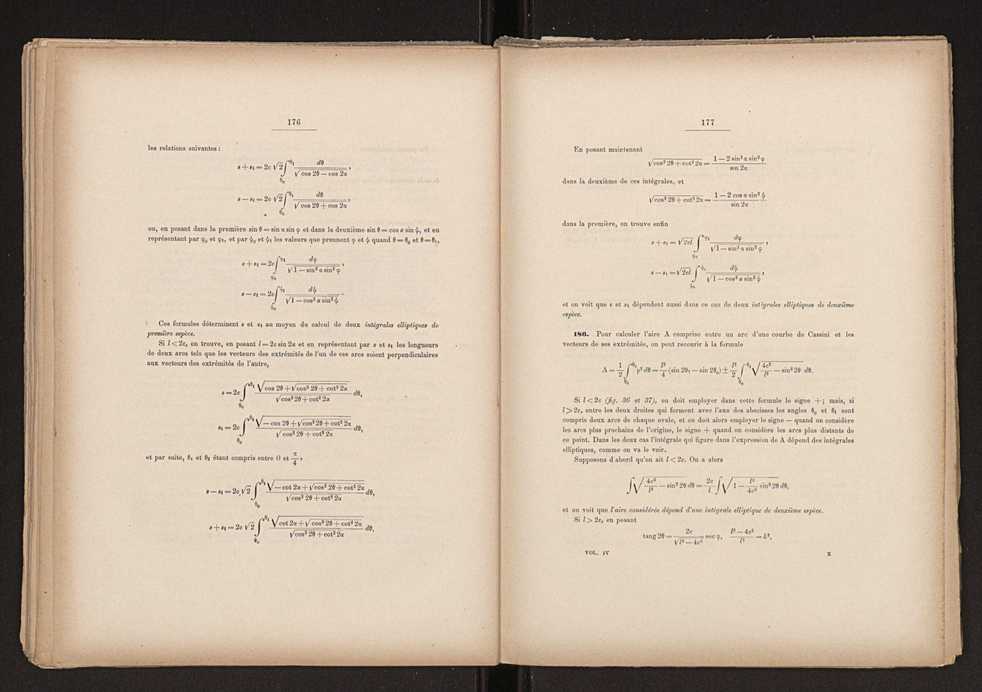 176
les relations suivantes :
s + s₁ = 2c √2 ∫_{θ₀}^{θ₁} dθ / √(cos 2θ − cos 2α),
s − s₁ = 2c √2 ∫_{θ₀}^{θ₁} dθ / √(cos 2θ + cos 2α),
ou, en posant dans la première sin θ = sin α sin φ et dans la deuxième sin θ = cos α sin ψ, et en
représentant par φ₀ et φ₁, et par ψ₀ et ψ₁ les valeurs que prennent φ et ψ quand θ = θ₀ et θ = θ₁,
s + s₁ = 2c ∫_{φ₀}^{φ₁} dφ / √(1 − sin² α sin² φ),
s − s₁ = 2c ∫_{ψ₀}^{ψ₁} dψ / √(1 − cos² α sin² ψ).
Ces formules déterminent s et s₁ au moyen du calcul de deux intégrales elliptiques de
première espèce.
Si l < 2c, on trouve, en posant l = 2c sin 2α et en représentant par s et s₁ les longueurs
de deux arcs tels que les vecteurs des extrémités de l'un de ces arcs soient perpendiculaires
aux vecteurs des extrémités de l'autre,
s = 2c ∫_{θ₀}^{θ₁} √(cos 2θ + √(cos² 2θ + cot² 2α)) / √(cos² 2θ + cot² 2α) dθ,
s₁ = 2c ∫_{θ₀}^{θ₁} √(− cos 2θ + √(cos² 2θ + cot² 2α)) / √(cos² 2θ + cot² 2α) dθ,
et par suite, θ₁ et θ₂ étant compris entre O et π/4,
s − s₁ = 2c √2 ∫_{θ₀}^{θ₁} √(− cot 2α + √(cos² 2θ + cot² 2α)) / √(cos² 2θ + cot² 2α) dθ,
s + s₁ = 2c √2 ∫_{θ₀}^{θ₁} √(cot 2α + √(cos² 2θ + cot² 2α)) / √(cos² 2θ + cot² 2α) dθ,
177
En posant maintenant
√(cos² 2θ + cot² 2α) = (1 − 2 sin² α sin² φ) / sin 2α
dans la deuxième de ces intégrales, et
√(cos² 2θ + cot² 2α) = (1 − 2 cos α sin² ψ) / sin 2α
dans la première, on trouve enfin
s + s₁ = √(2cl) ∫_{φ₀}^{φ₁} dφ / √(1 − sin² α sin² φ),
s − s₁ = √(2cl) ∫_{ψ₀}^{ψ₁} dψ / √(1 − cos² α sin² ψ),
et on voit que s et s₁ dépendent aussi dans ce cas de deux intégrales elliptiques de deuxième
espèce.
186. Pour calculer l'aire A comprise entre un arc d'une courbe de Cassini et les
vecteurs de ses extrémités, on peut recourir à la formule
A = 1/2 ∫_{θ₀}^{θ₁} ρ² dθ = l²/4 (sin 2θ₁ − sin 2θ₀) ± l²/2 ∫_{θ₀}^{θ₁} √(4c²/l² − sin² 2θ) dθ.
Si l < 2c (fig. 36 et 37), on doit employer dans cette formule le signe + ; mais, si
l > 2c, entre les deux droites qui forment avec l'axe des abscisses les angles θ₀ et θ₁ sont
compris deux arcs de chaque ovale, et on doit alors employer le signe − quand on considère
les arcs plus prochains de l'origine, le signe + quand on considère les arcs plus distants de
ce point. Dans les deux cas l'intégrale qui figure dans l'expression de A dépend des intégrales
elliptiques, comme on va le voir.
Supposons d'abord qu'on ait l < 2c. On a alors
∫ √(4c²/l² − sin² 2θ) dθ = 2c/l ∫ √(1 − l²/4c² sin² 2θ) dθ,
et on voit que l'aire considérée dépend d'une intégrale elliptique de deuxième espèce.
Si l > 2c, en posant
tang 2θ = 2c / √(l² − 4c²) sec φ, (l² − 4c²) / l² = k²,
VOL. IV X